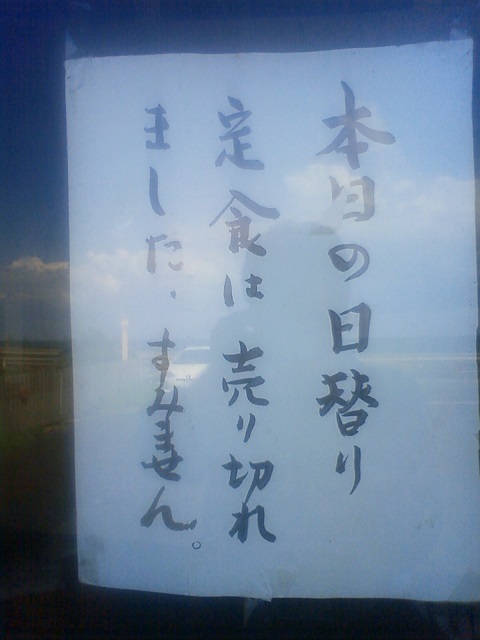 本日の日替り
定食は売り切れ
ました、すみません。